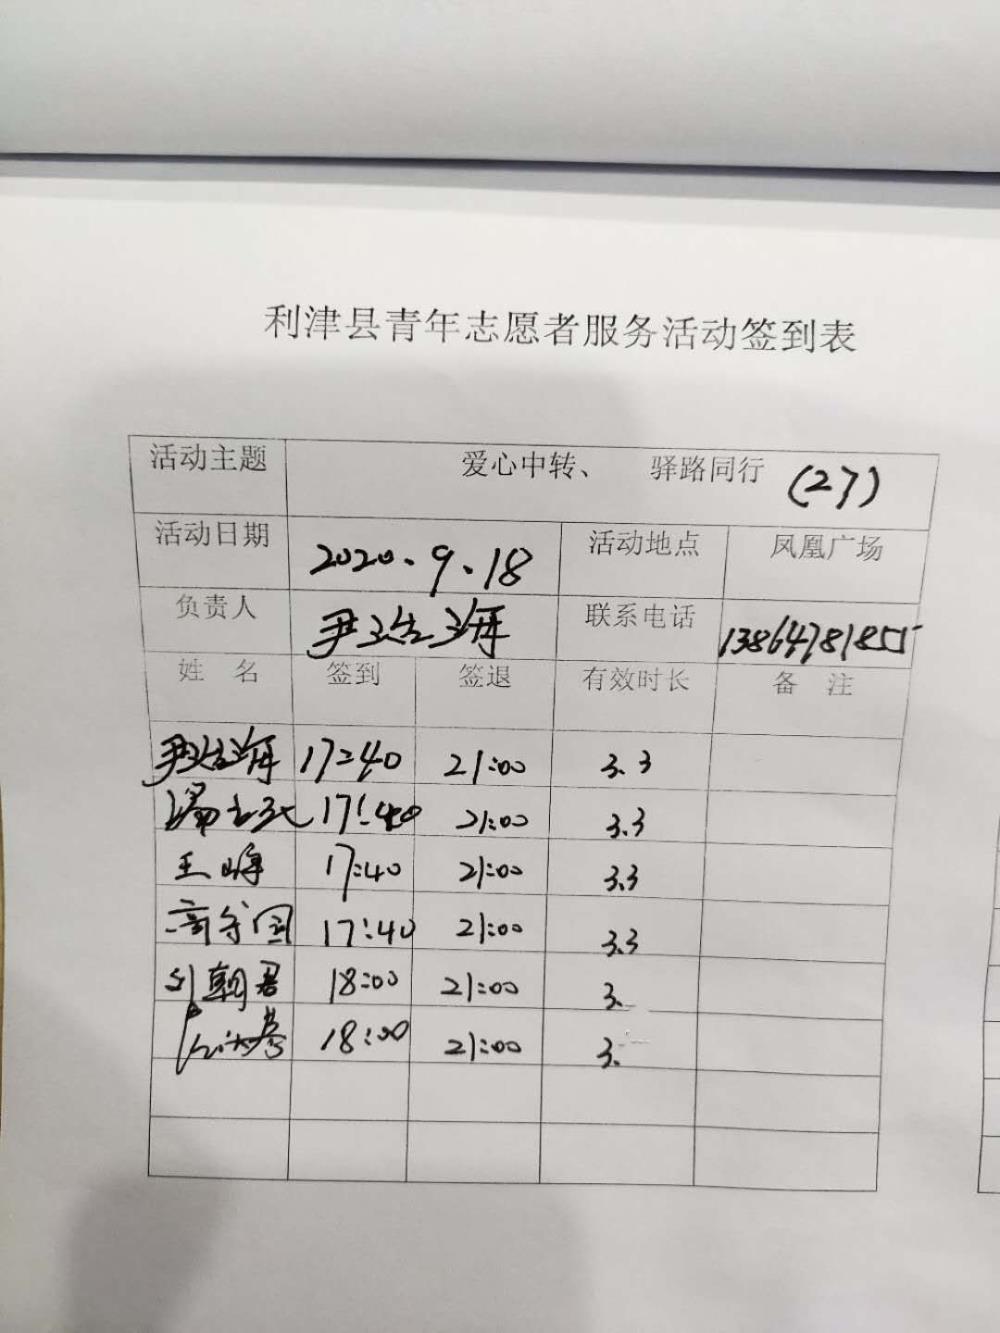 利津县青年志愿者服务活动签到表
活动主题 爱心中转、 驿路同行 (27)
活动日期 2020.9.18 活动地点 凤凰广场
负责人 尹海 联系电话 13864781855
姓 名 签到 签退 有效时长 备 注
尹海 17:40 21:00 3.3
17:40 21:00 3.3
王峰 17:40 21:00 3.3
高守国 17:40 21:00 3.3
刘朝君 18:00 21:00 3.
18:00 21:00 3.